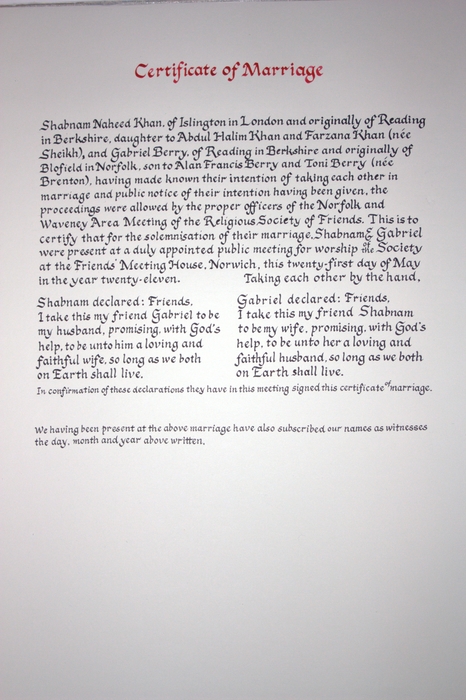 Certificate of Marriage
Shabnam Naheed Khan, of Islington in London and originally of Reading
in Berkshire, daughter to Abdul Halim Khan and Farzana Khan (née
Sheikh), and Gabriel Berry, of Reading in Berkshire and originally of
Blofield in Norfolk, son to Alan Francis Berry and Toni Berry (née
Brenton), having made known their intention of taking each other in
marriage and public notice of their intention having been given, the
proceedings were allowed by the proper officers of the Norfolk and
Waveney Area Meeting of the Religious Society of Friends. This is to
certify that for the solemnisation of their marriage, Shabnam & Gabriel
were present at a duly appointed public meeting for worship of the Society
at the Friends' Meeting House, Norwich, this twenty-first day of May
in the year twenty-eleven. Taking each other by the hand,
Shabnam declared: Friends,
I take this my friend Gabriel to be
my husband, promising, with God's
help, to be unto him a loving and
faithful wife, so long as we both
on Earth shall live.
Gabriel declared: Friends,
I take this my friend Shabnam
to be my wife, promising, with God's
help, to be unto her a loving and
faithful husband, so long as we both
on Earth shall live.
In confirmation of these declarations they have in this meeting signed this certificate of marriage.
We having been present at the above marriage have also subscribed our names as witnesses
the day, month and year above written.